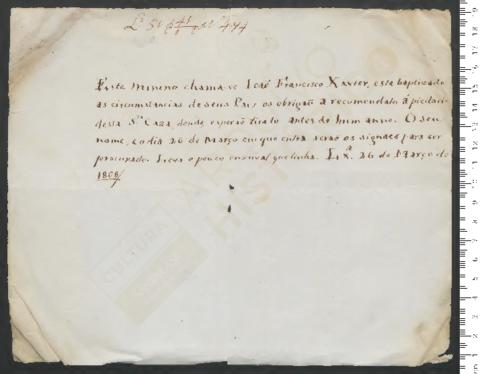 Este Menino chama-se José Francisco Xavier, esta baptizado
as circumstancias de seus Pais os obrigão a recomendalo á piedade
desta Sta Caza, donde esperão tiralo antes de hum anno. O seu
nome, e o dia 26 de Março em que entra serão os signaes para ser
procurado. Leva o pouco enxoval que tinha. Lxa 26 de Março de
1808